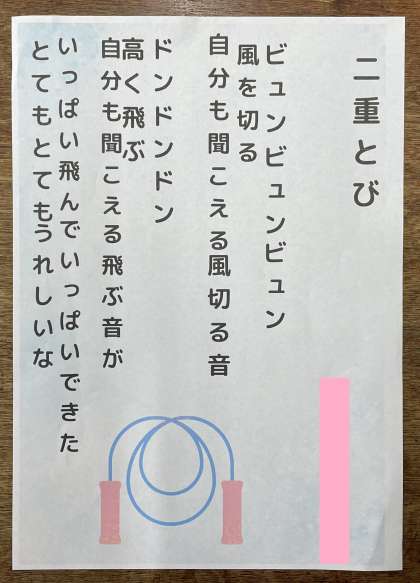 二重とび
ビュンビュンビュン
風を切る
自分も聞こえる風切る音
ドンドンドン
高く飛ぶ
自分も聞こえる飛ぶ音が
いっぱい飛んでいっぱいできた
とてもとてもうれしいな